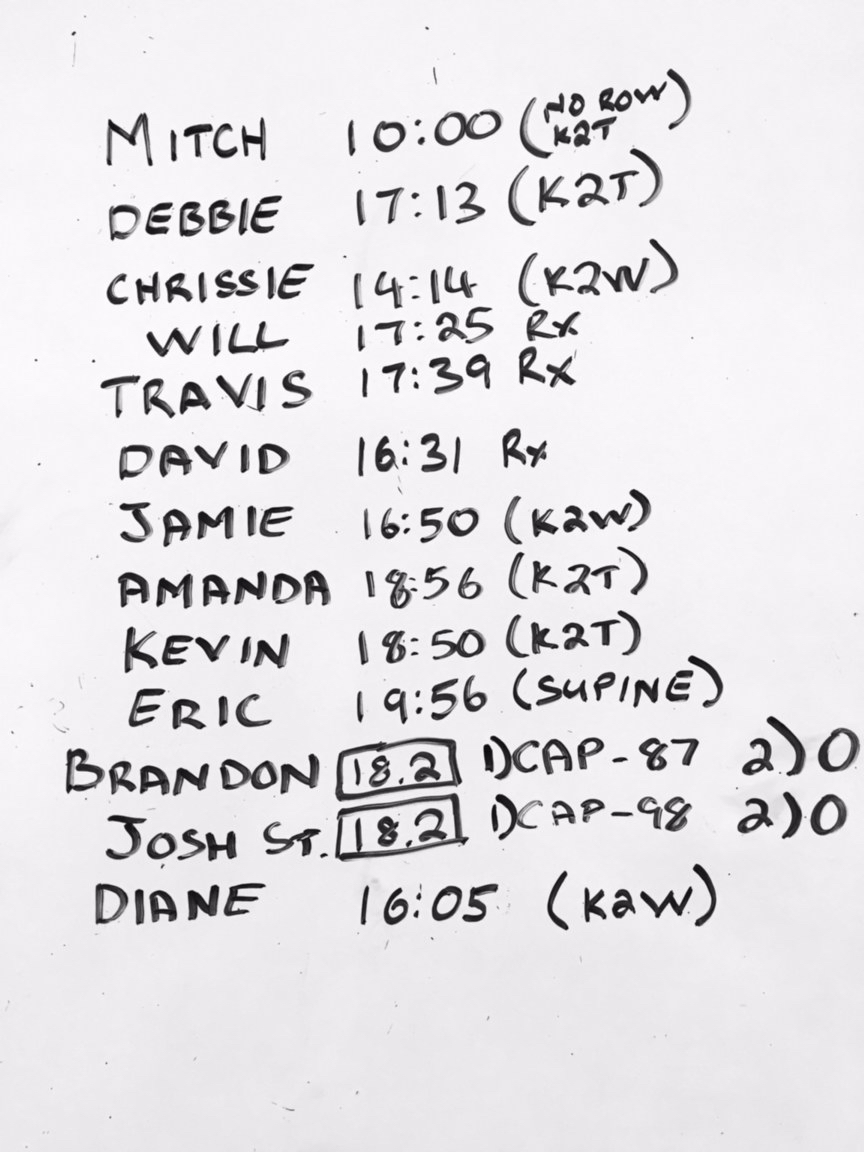 MITCH 10:00 (NO ROW K2T)
DEBBIE 17:13 (K2T)
CHRISSIE 14:14 (K2W)
WILL 17:25 Rx
TRAVIS 17:39 Rx
DAVID 16:31 Rx
JAMIE 16:50 (K2W)
AMANDA 18:56 (K2T)
KEVIN 18:50 (K2T)
ERIC 19:56 (SUPINE)
BRANDON 18.2 1)CAP-87 2)0
JOSH ST. 18.2 1)CAP-98 2)0
DIANE 16:05 (K2W)